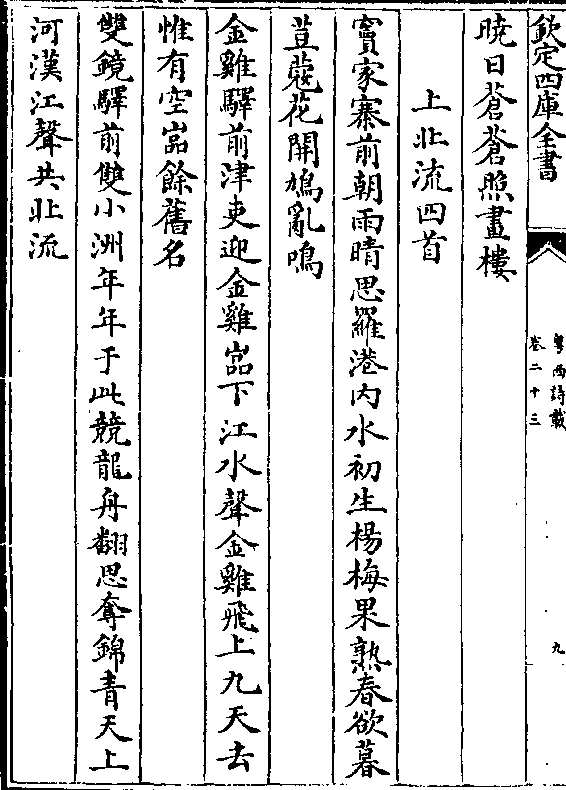 欽定四庫全書
粵西詩載
卷二十三
九
曉日蒼蒼照畫樓
上北流四首
竇家寨前朝雨晴思羅港内水初生楊梅果熟春欲暮
荳蔻花開鳩亂鳴
金雞驛前津吏迎金雞嵓下江水聲金雞飛上九天去
惟有空嵓餘舊名
雙鏡驛前雙小洲年年于此競龍舟翻思奪錦青天上
河漢江聲共北流